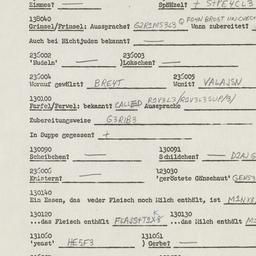 Zimmes? — Spänzel? + STPEYCL3
138040
Grinsel/Prinsel: Aussprache? G2RINS3L3 Wann zubereitet?
Auch bei Nichtjuden bekannt? —
236002 236003
'Nudeln' — )Lokschen? —
236004 236005
Worauf gewälzt? BREYT Womit? VALAJSN
130100
Farfel/Fervel: bekannt? CALLED Aussprache
Zubereitungsweise G3RIB3
In Suppe gegessen? +
130090 130091
Scheibchen? — Schildchen? —
236006 123030
Knistern? — 'geröstete Gänsehaut'
130140
Ein Essen, das weder Fleisch noch Milch enthält, ist
130120 130130
...das Fleisch enthält ...das Milch
131060 131061
'yeust' HE5F3 ) Gerbe? —